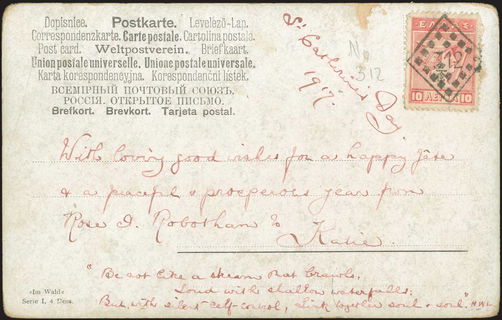 Dopisnice. Postkarte. Levelező-Lap.
Correspondenzkarte. Carte postale. Cartolina postale.
Post card. Weltpostverein. Briefkaart.
Union postale universelle. Unione postale universale.
Karta korespondencyjna. Korespondenční lístek.
ВСЕМІРНЫЙ ПОЧТОВЫЙ СОЮЗЪ.
РОССІЯ. ОТКРЫТОЕ ПИСЬМО.
Brefkort. Brevkort. Tarjeta postal.
St Catherine's Day
1917.
No
312
ΕΛΛΑΣ
312
10 ΛΕΠΤΑ 10
With loving good wishes for a happy fête
& a peaceful & prosperous year from
Rose I. Robotham to
Katie.
"Be not like a stream that brawls,
Loud with shallow waterfalls;
But with silent self-control, Link together soul & soul." H.W.L
«Im Wald»
Serie I, 4 Dess.